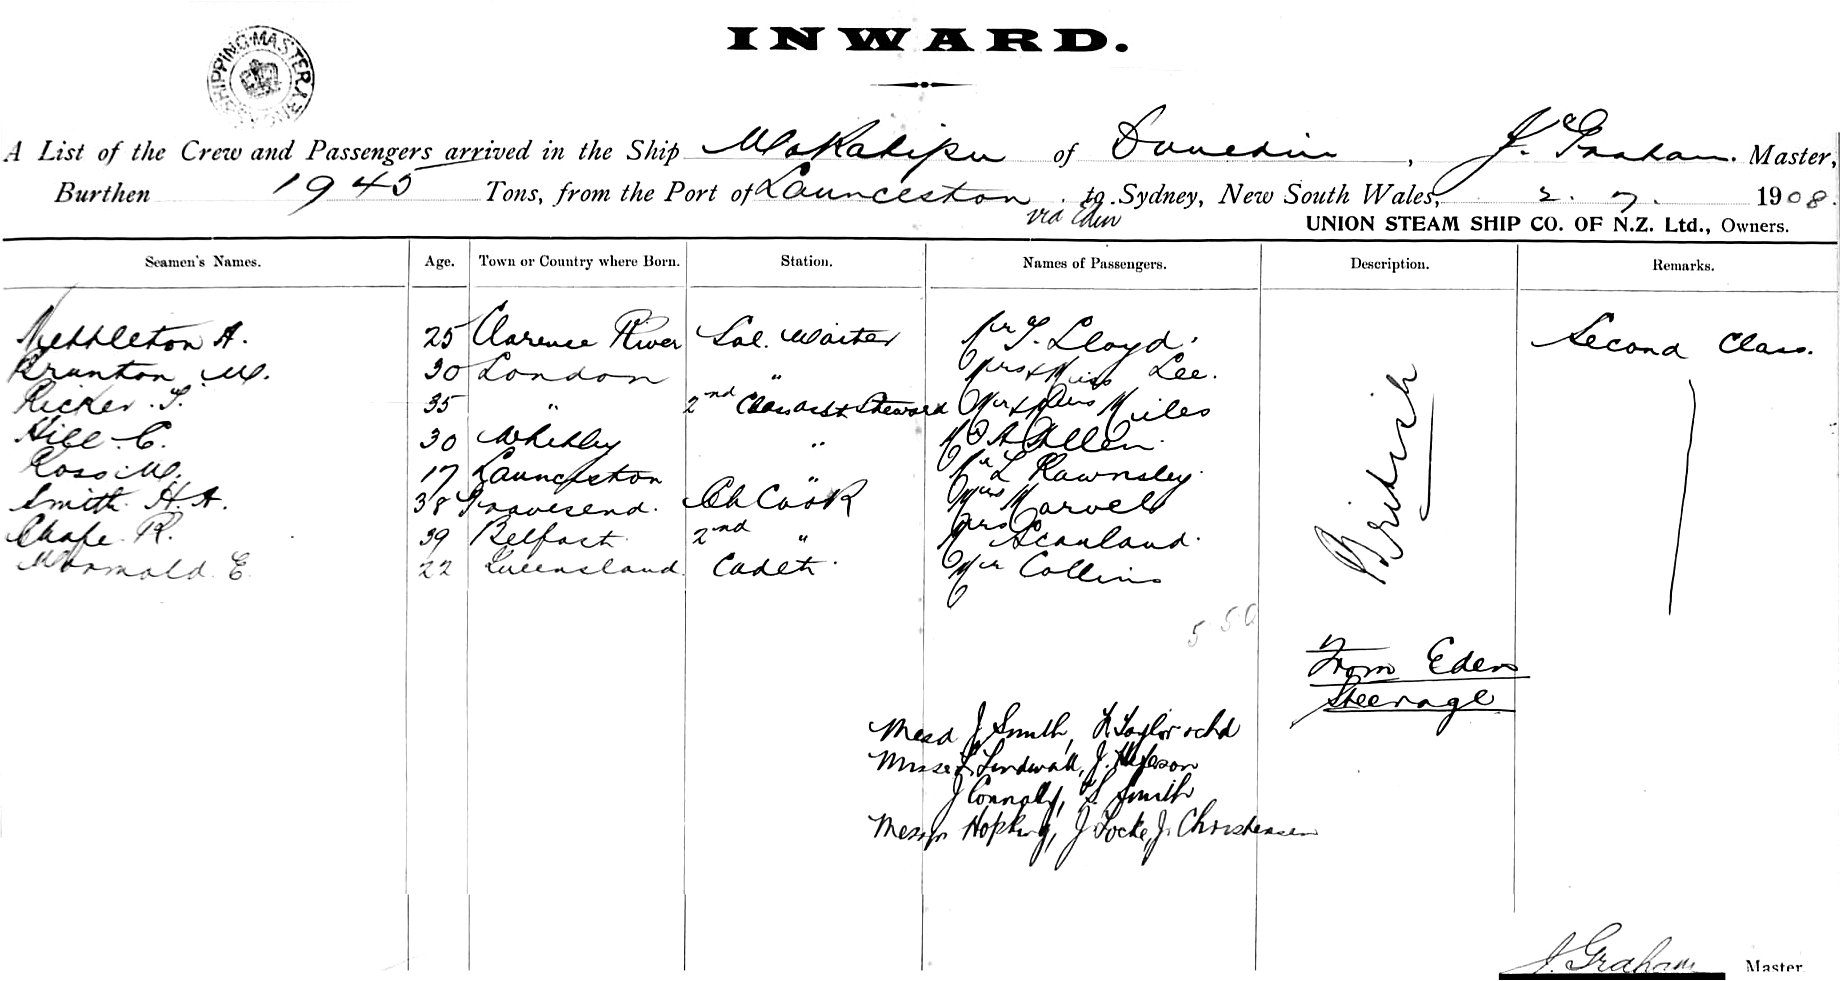 INWARD.
SHIPPING MASTER
A List of the Crew and Passengers arrived in the Ship Wakatipu of Dunedin, J. Graham. Master,
Burthen 1945 Tons, from the Port of Launceston to Sydney, New South Wales, 2. 7. 1908.
via Eden
UNION STEAM SHIP CO. OF N.Z. Ltd., Owners.
Seamen's Names. Age. Town or Country where Born. Station. Names of Passengers. Description. Remarks.
Nettleton A. 25 Clarence River Sal. Waiter Mr T. Lloyd. Second Class.
Brunton M. 30 London " Mrs & Miss Lee.
Ricker. T. 35 " 2nd Class Asst Steward Mr & Mrs Miles
Hill. C. 30 Whitby " A Allen.
Ross M. 17 Launceston " Mr L Rawnsley.
Smith. H. A. 38 Gravesend. Ch Cook Mrs Marvell
Chafe. R. 39 Belfast. 2nd " Mrs Scanland.
Wormald. E. 22 Queensland Cadet. Mr Collins
British
From Eden
Steerage
J Smith, Taylor & chd
Lindwall, J.
J Connolly, S. Smith
Messrs Hopkins, J Locke, J. Christensen
J. Graham Master.